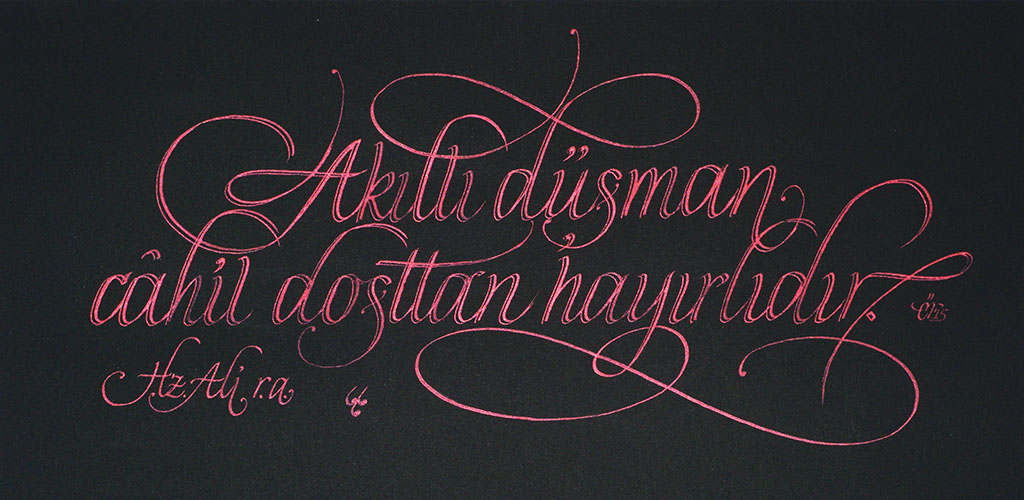 Akıllı düşman
câhil dosttan hayırlıdır.
Hz. Ali r.a